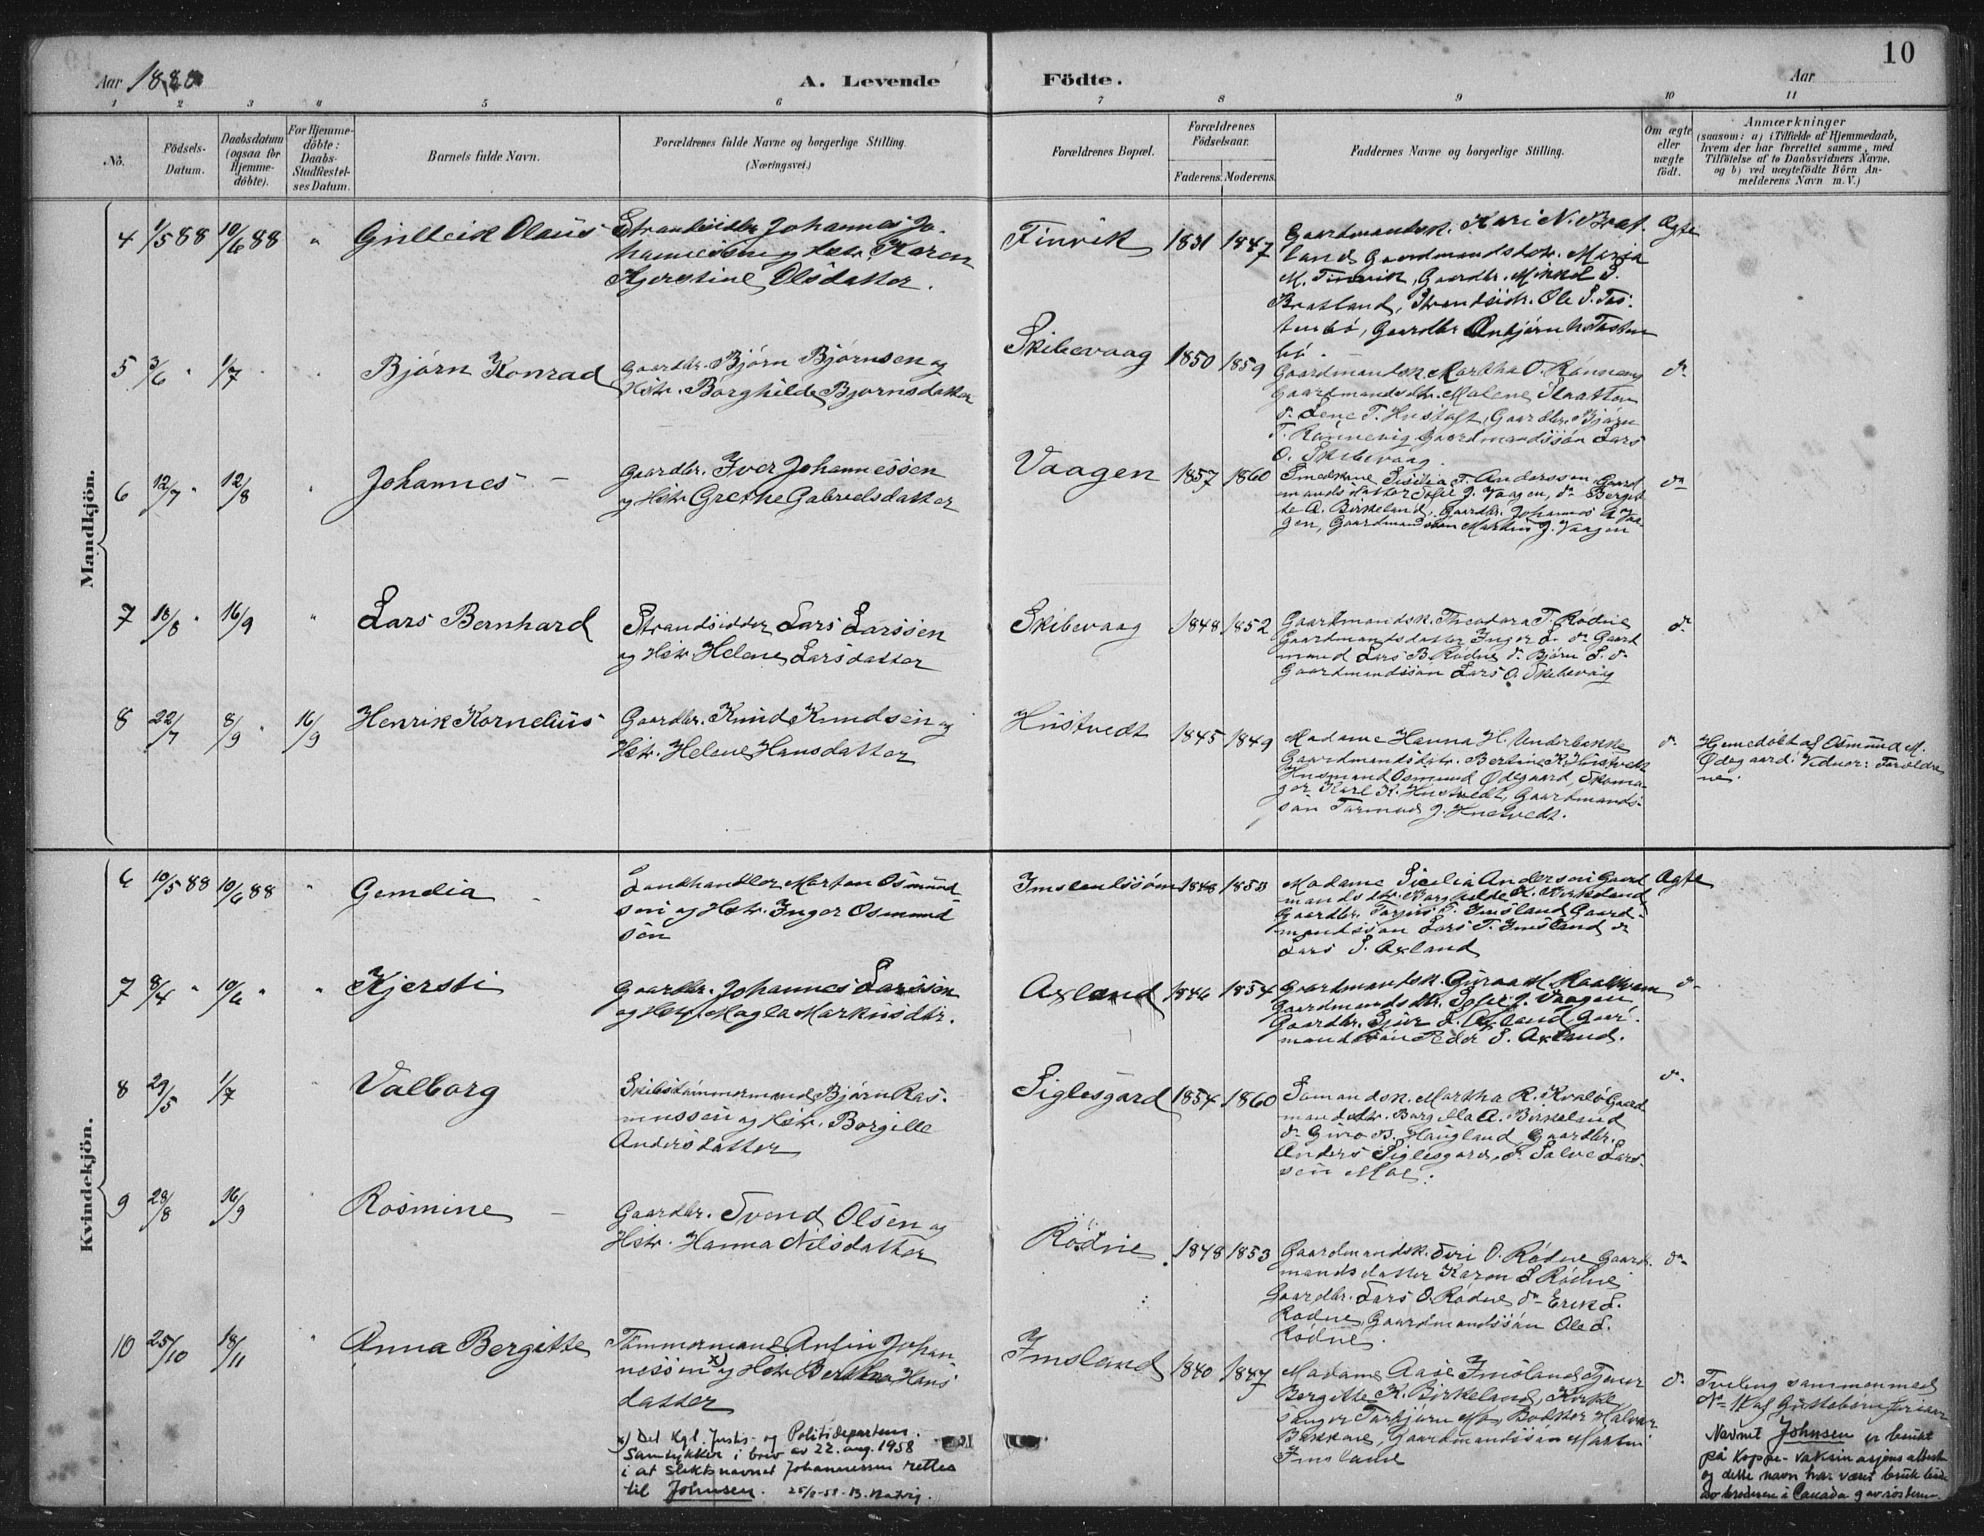 10
Aar 1888
A. Levende
Födte.
Aar
1 2 3 4 5 6 7 8 9 10 11
No.
Födsels-
Datum.
Daabsdatum
(ogsaa for
Hjemme-
döbte).
For Hjemme-
döbte:
Daabs-
Stadfestel-
ses Datum.
Barnets fulde Navn.
Forældrenes fulde Navne og borgerlige Stilling.
(Næringsvei.)
Forældrenes Bopæl.
Forældrenes
Födselsaar.
Faderens. Moderens.
Faddernes Navne og borgerlige Stilling.
Om ægte
eller
uægte
födt.
Anmærkninger
(saasom: a) i Tilfælde af Hjemmedaab,
hvem der har forrettet samme, med
Tilföielse af to Daabsvidners Navne,
og b) ved uægtefödte Börn An-
melderens Navn m. V.)
Mandkjön.
4 1/5 88 10/6 88 " Gulleik Olaus
Strandsidder Johannes Jo-
hannessen og Hstr. Karen
Kjerstine Olsdatter.
Finvik 1831 1847
Gaardmandsk. Kari N. Brat-
land Gaardmandsdtr. Maria
M. Finvik, Gaardbr. Mikkel S.
Bratland, Strandsidr. Ole S. Tas-
tenbö, Gaardbr. Anbjørn N. Tasten
bö.
Ægte
5 3/6 " 1/7 Bjørn Konrad
Gaardbr. Bjørn Bjørnsen og
Hstr. Borghilde Bjørnsdatter
Skibevaag 1850 1859
Gaardmandsk. Martha O. Rönnevig
Gaardmandsdtr. Malene
do Lene T. Gaardbr. Bjørn
T. Rönnevig Gaardmandssön Lars
O. Skibevaag.
do
6 12/7 " 12/8 " Johannes -
Gaardbr. Iver Johannessen
og Hstr. Grethe Gabrielsdatter
Vaagen 1857 1860
Smedkone Sisilia T. Anderssen, Gaard
mandsdatter Sofie J. Vaagen, do Bergit-
te A. Birkeland, Gaardbr. Johannes Vaa-
gen, Gaardmandssön Markus J. Vaagen
do
7 18/8 " 16/9 " Lars Bernhard
Strandsidder Lars Larssen
og Hstr. Helene Larsdatter
Skibevaag 1848 1852
Gaardmandsk. Theodora T. Rödne
Gaardmandsdatter Inger L. do Gaard
mand Lars B. Rödne do Bjørn L. do
Gaardmandssön Lars O. Skibevaag
do
8 22/7 8/9 " 16/9 Henrik Kornelius
Gaardbr. Knud Knudsen og
Hstr. Helene Hansdatter
Hustvedt 1845 1849
Madame Hanna H. Underbakke
Gaardmandsdatr. Bertine K. Hustvedt
Husmand Osmund Ödegaard, Skoma-
ger Karl K. Hustvedt, Gaardmands-
sön Tormod J. Hustvedt.
do
Hjemedöbt af Osmund M.
Ödegaard. Vidner: Foreldre
ne.
Kvindekjön.
6 10/5 88 10/6 88 " Gemelia
Landhandler Morten Osmund
sen og Hstr. Inger Osmund
sen
Imslandssjøen 1848 1850
Madame Sicelia Andersen Gaard
mandsdtr. Borghilde K. Birkeland
Gaardbr. Torjus T. Imsland Gaard-
mandssön Lars T. Imsland do
Lars S. Axland
Ægte
7 8/4 " 10/6 " " Kjersti
Gaardbr. Johannes Larssen
og Hstr. Magla Markusdtr.
Axland 1846 1854
Gaardmandsk. Guraa M. Maalkvam
Gaardmandsdtr. Sofie J. Vaagen
Gaardbr. Sjur L. Axland Gaar-
mandssön Peder S. Axland.
do
8 29/5 1/7 Valborg
Skibstömmermand Bjørn Ras-
mussen og Hstr. Borgille
Andersdatter
Siglesgard 1854 1860
Sømandsk. Martha R. Kvalö Gaard
mandsdtr. Borgilla A. Birkeland
do Guro B. Haugland, Gaardbr.
Anders Siglesgard, do Salve Lars-
sen Moe.
do
9 28/8 16/9 " Rosmine -
Gaardbr. Svend Olsen og
Hstr. Hanna Nilsdatter
Rödne 1848 1853
Gaardmandsk. Siri O. Rödne Gaard-
mandsdatter Karen S Rödne
Gaardbr. Lars O. Rödne do Erik L.
Rödne, Gaardmandssön Ole L.
Rödne.
do
10 25/10 18/11 " Anna Bergitte
Tömmermand Anfin Johan-
nessen x) og Hstr. Berthe Hans
datter
Imsland 1840 1847
Madame Aase Imsland Tjener
Bergitte K. Birkeland, Kirke
sanger Torbjørn Mo, Bödker Halvor
Bakkare, Gaardmandssön Martin
Imsland
do
Tviling sammen med
No 11 af Guttebørn foriaar
Navnet Johnsen er brukt
på koppe-vaksinasjons attesten
og dette navn har vært brukt både
av broderen i Canada og av søsteren.
x) Det Kgl. Justis- og Politidepartem.
Samtykker i brev av 22. aug. 1958
i at slektsnavnet Johannessen rettes
til Johnsen. 25/8-58